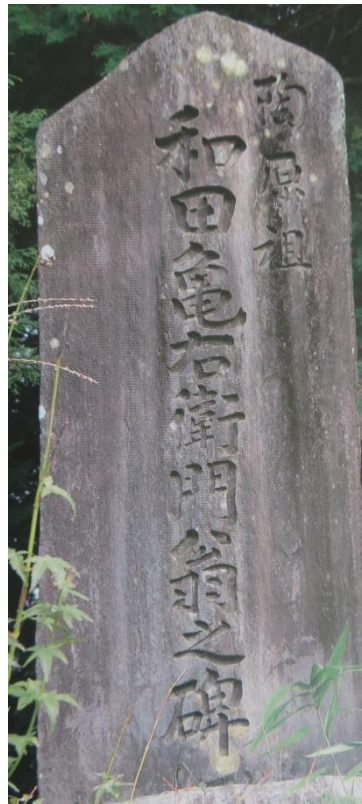 陶原祖
和田亀右衛門翁之碑